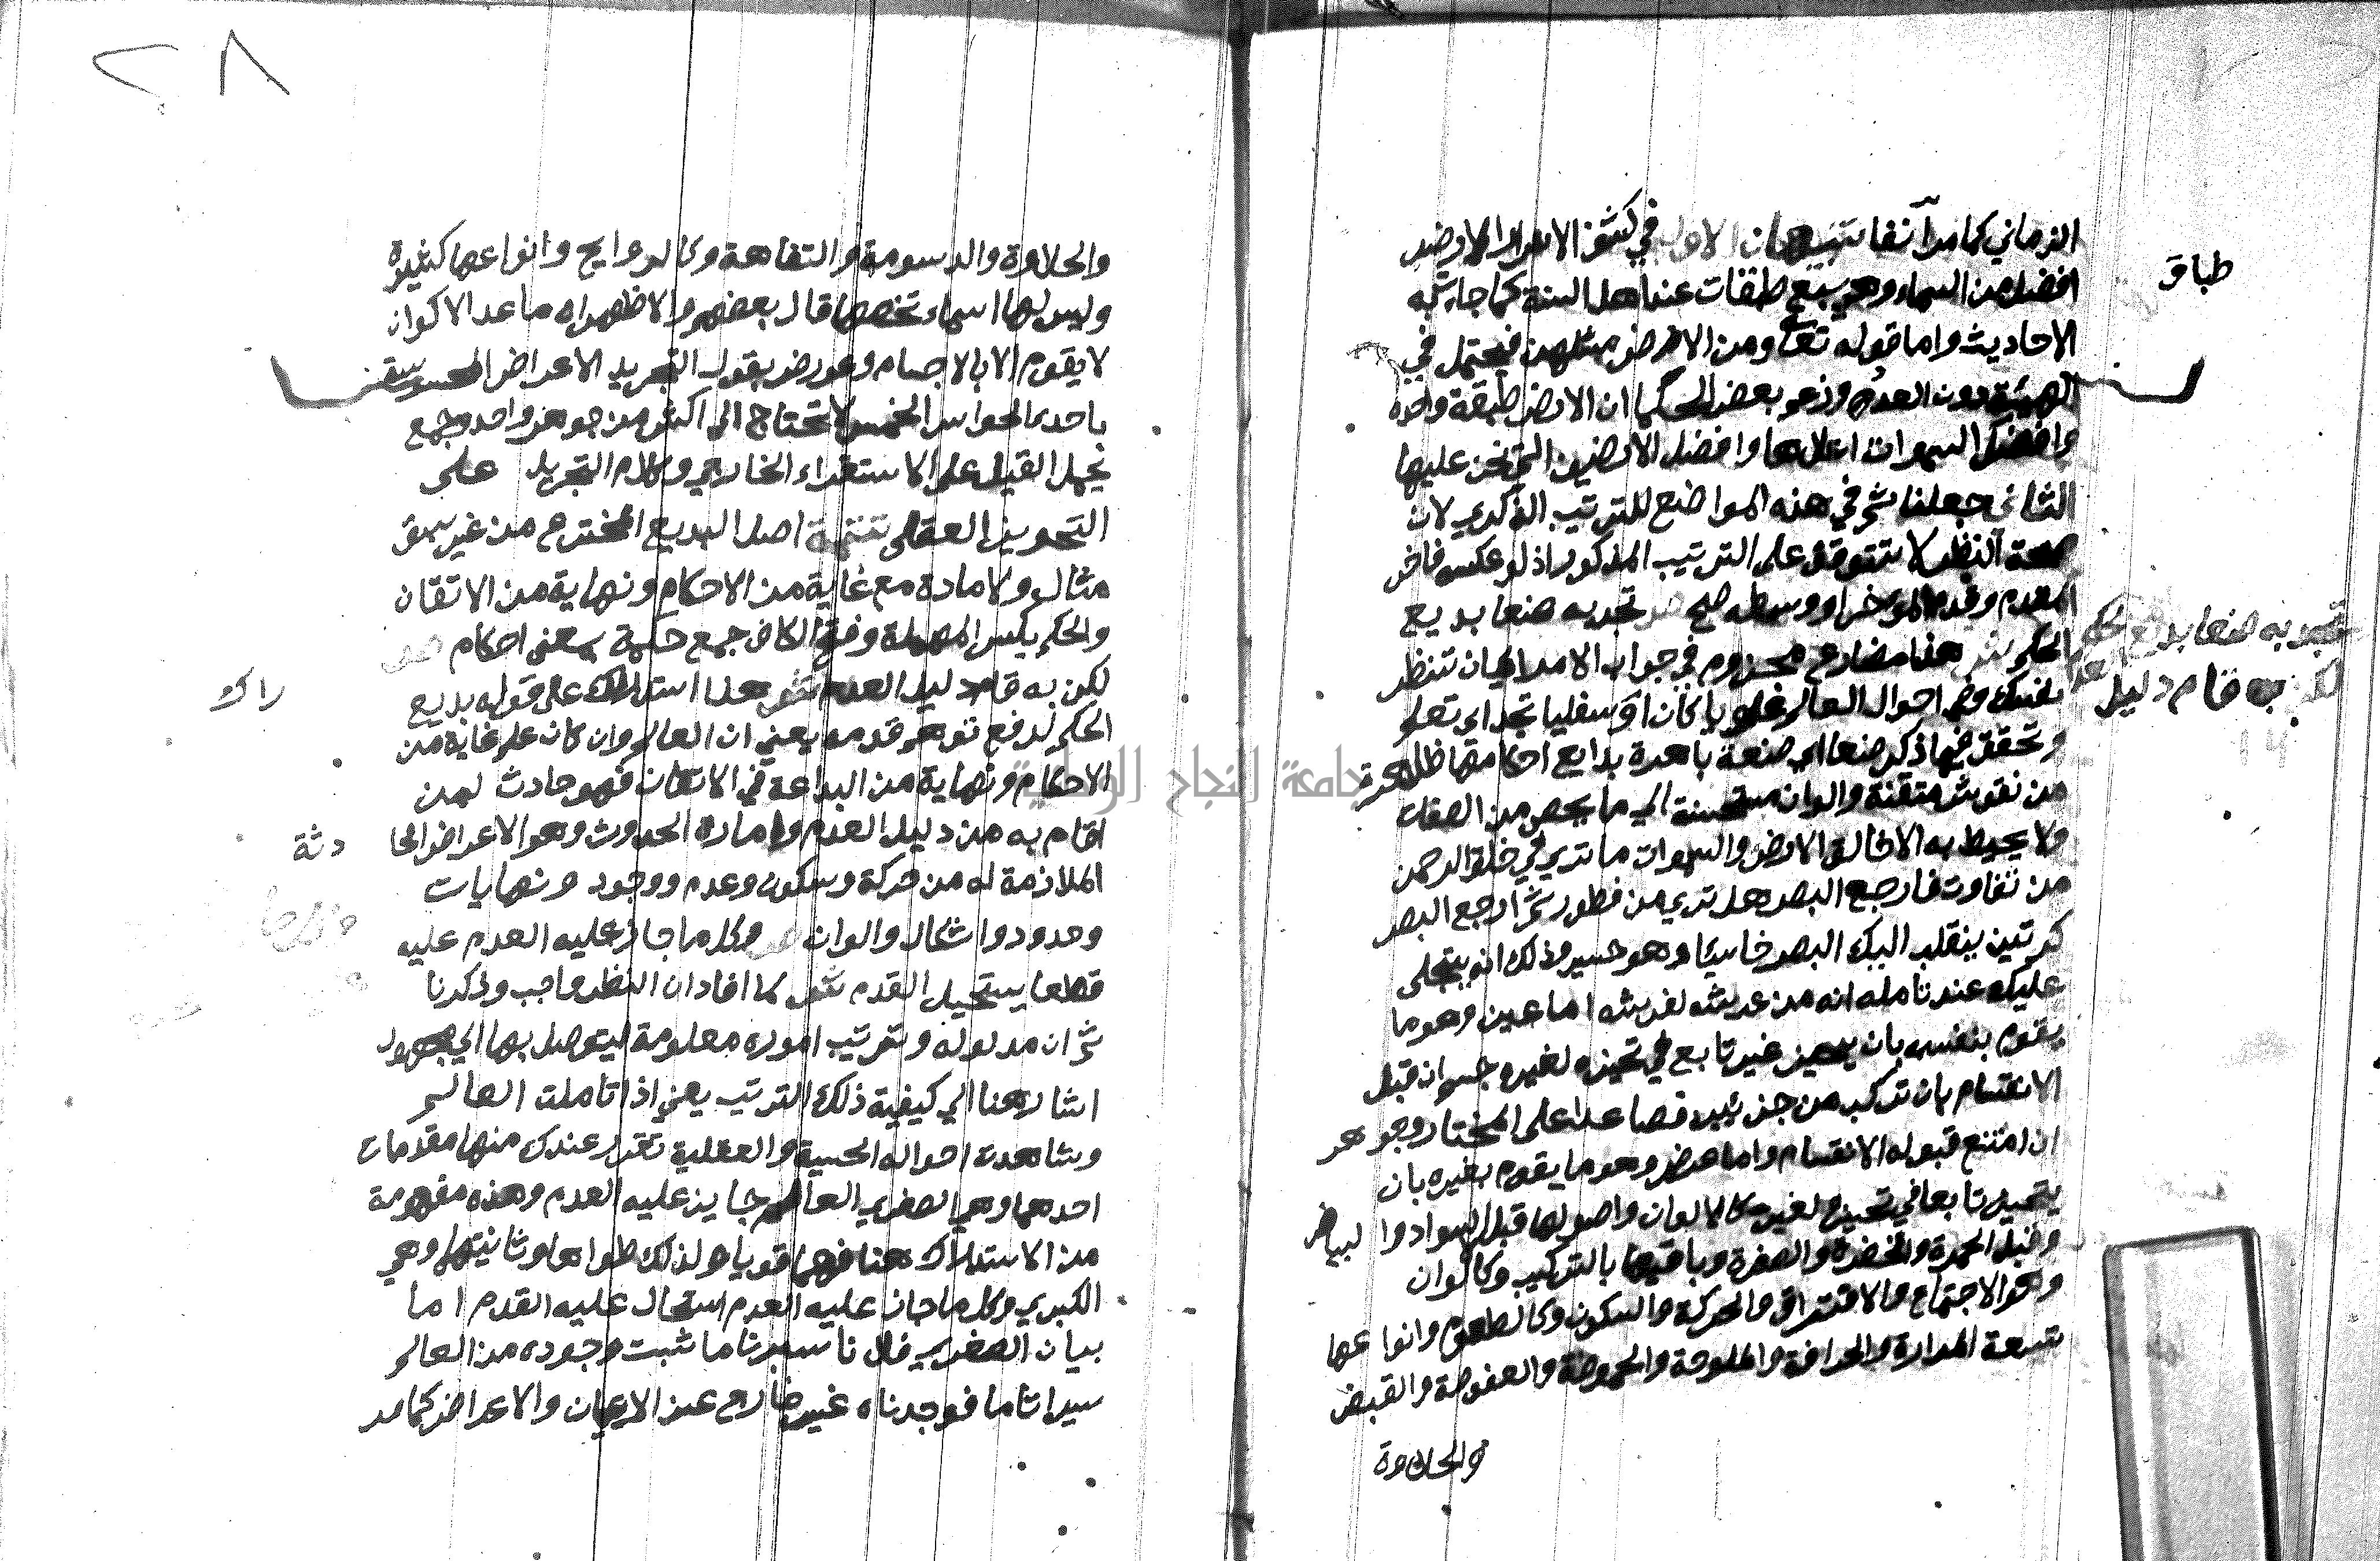 الزماني كما مر آنفا تنبيهان الاول في كشف الاسرار الارض
افضل من السماء وهي سبع طبقات عند اهل السنة كما جاءت به
طباق
الاحاديث واما قوله تعالى ومن الارض مثلهن فيحتمل في
الهيئة دون العدد وزعم بعض الحكما ان الارض طبقة واحدة
وافضل السموات اعلاها وافضل الارضين التي نحن عليها
الثاني جعلنا ثم في هذه المواضع للترتيب الذكري لان
صحة النظر لا تتوقف على الترتيب المذكور اذ لو عكسه فاخر
المقدم وقدم المؤخر او وسطه صح تجد به صنعا بديع
الحكم ش هذا مضارع مجزوم في جواب الامر اي ان تنظر
تجد به صنعا بديع الحكم
لكن به قام دليل
نفسك وفي احوال العالم علويا كان او سفليا تجد اي تعلم
وتحقق فيما ذكر صنعا اي صنعة باهرة بدايع احكامها ظاهرة
من نقوش متقنة والوان مستحسنة الي ما يحص من الصفات
ولا يحيط به الا خالق الارض والسموات ما تري في خلق الرحمن
من تفاوت فارجع البصر هل تري من فطور ثم ارجع البصر
كرتين ينقلب اليك البصر خاسئا وهو حسير وذلك انه يتجلى
عليك عند تامله انه من عرشه لفرشه اما عين وهو ما
يقوم بنفسه بان يتحيز غير تابع في تحيزه لغيره جسم ان قبل
الانقسام بان تركب من جزئين فصاعدا على المختار وجوهر
ان امتنع قبوله الانقسام واما عرض وهو ما يقوم بغيره بان
يتحيز تابعا في تحيزه لغيره كالالوان واصولها قيل السواد والبياض
وقيل الحمرة والخضرة والصفرة وباقيها بالتركيب وكالوان
وهو الاجتماع والافتراق والحركة والسكون وكالطعوم وانواعها
تسعة المرارة والحرافة والملوحة والحموضة والعفوصة والقبض
والحلاوة
٢٨
والحلاوة والدسومة والتفاهة وكالروايح وانواعها كثيرة
وليس لها اسماء تخصها قال بعضهم والاظهر ان ما عدا الاكوان
لا يقوم الا بالاجسام وعورض بقول التجريد الاعراض المحسوسة
باحدي الحواس الخمس لا تحتاج الى اكثر من جوهر واحد وجمع
بحمل القيل على الاستقراء الخارجي وكلام التجريد على
التجويز العقلي تتمة اصل البديع المخترع من غير سبق
مثال ولا مادة مع غاية من الاحكام ونهاية من الاتقان
والحكم بكسر المهملة وفتح الكاف جمع حكمة بمعنى احكام ص
لكن به قام دليل العدم ش هذا استدراك على قوله بديع
راك
الحكم لدفع توهم قدمه يعني ان العالم وان كان على غاية من
الاحكام ونهاية من البداعة في الاتقان فهو حادث لمن
اقام به من دليل العدم وامارة الحدوث وهو الاعراض الحا
دثة
الملازمة له من حركة وسكون وعدم ووجود ونهايات
وحدود واشكال والوان ص وكل ما جاز عليه العدم عليه
قطعا يستحيل القدم ش لما افاد ان النظر واجب وذكرنا
ثم ان مدلوله وترتيب امور معلومة ليتوصل بها الي مجهول
اشار هنا الي كيفية ذلك الترتيب يعني اذا تاملت العالم
وشاهدت احواله الحسية والعقلية تقرر عندك منها مقدمات
احدهما وهي الصغري العالم جايز عليه العدم وهذه مفهومة
من الاستدراك هنا فهما قويا ولذلك طواها وثانيتهما وهي
الكبري وكل ما جاز عليه العدم استحال عليه القدم اما
بيان الصغري فلانا سبرنا ما ثبت وجوده من العالم
سبرا تاما فوجدناه غير خارج عن الاعيان والاعراض كما مر
جامعة النجاح الوطنية